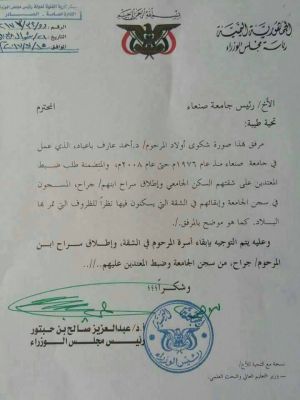 بسم الله الرحمن الرحيم
الجمهورية اليمنية
رئاسة مجلس الوزراء
الأخ/ رئيس جامعة صنعاء المحترم
تحية طيبة:
مرفق بهذا صورة شكوى أولاد المرحوم/ د.أحمد عارف باعباد، الذي عمل
في جامعة صنعاء منذ عام ١٩٧٦م حتى عام ٢٠٠٨م، والمتضمنة طلب ضبط
المعتدين على شقتهم السكن الجامعي وإطلاق سراح ابنهم/ جراح، المسجون
في سجن الجامعة وإبقائهم في الشقة التي يسكنون فيها نظراً للظروف التي تمر بها
البلاد. كما هو موضح بالمرفق./.
وعليه يتم التوجيه بإبقاء أسرة المرحوم في الشقة، وإطلاق سراح ابن
المرحوم/ جراح، من سجن الجامعة وضبط المعتدين عليهم..//..
وشكراً،،،
أ.د/ عبدالعزيز صالح بن حبتور
رئيس مجلس الوزراء
رئيس الوزراء
نسخة مع التحية للأخ/
- وزير التعليم العالي والبحث العلمي.